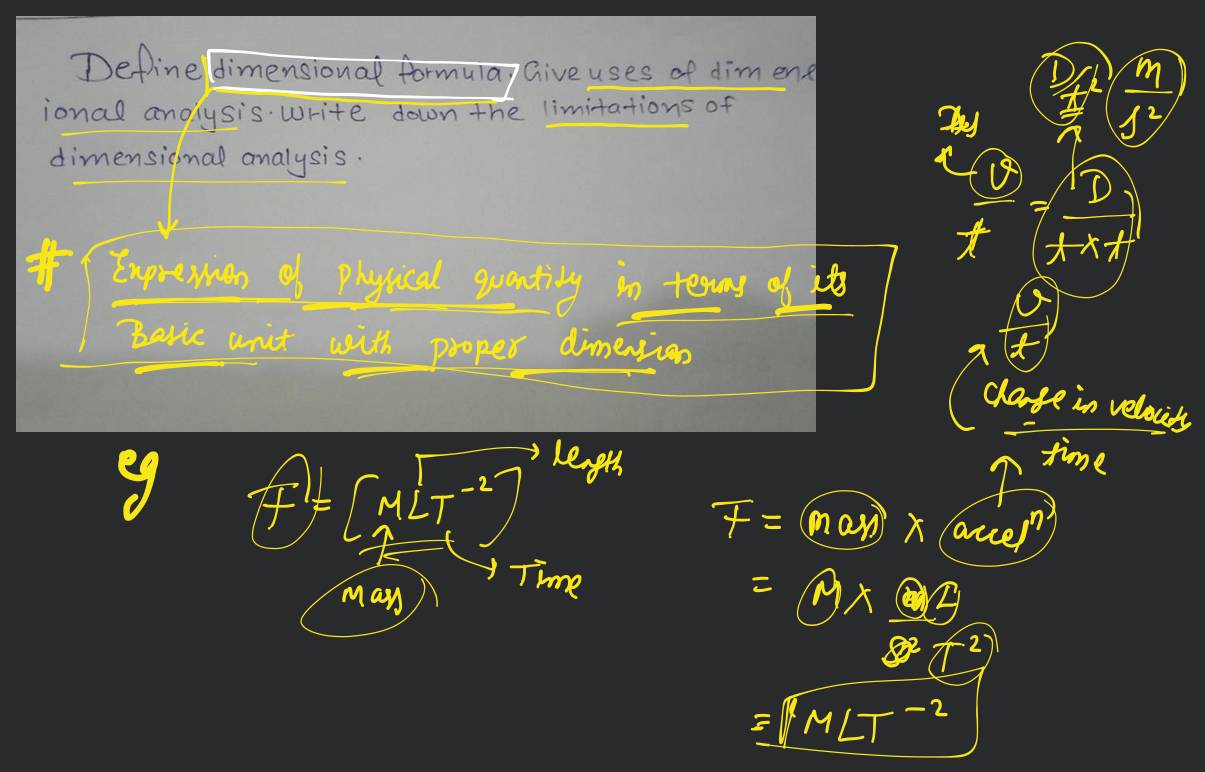 Define dimensional formula. Give uses of dimens
ional analysis. Write down the limitations of
dimensional analysis.
# Expression of Physical quantity in terms of its
Basic unit with proper dimension
eg
F = [MLT⁻²]
Length
Mass
Time
D/t² m/s²
v/t = D/t×t
v/t
change in velocity
time
F = mass × accelⁿ
= M × L
T²
= MLT⁻²